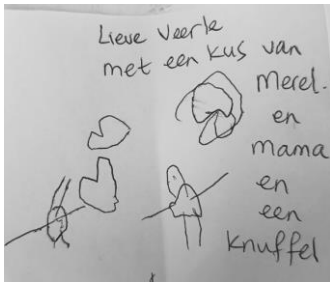 Lieve Veerle
met een kus van
Merel.
en
mama
en
een
knuffel